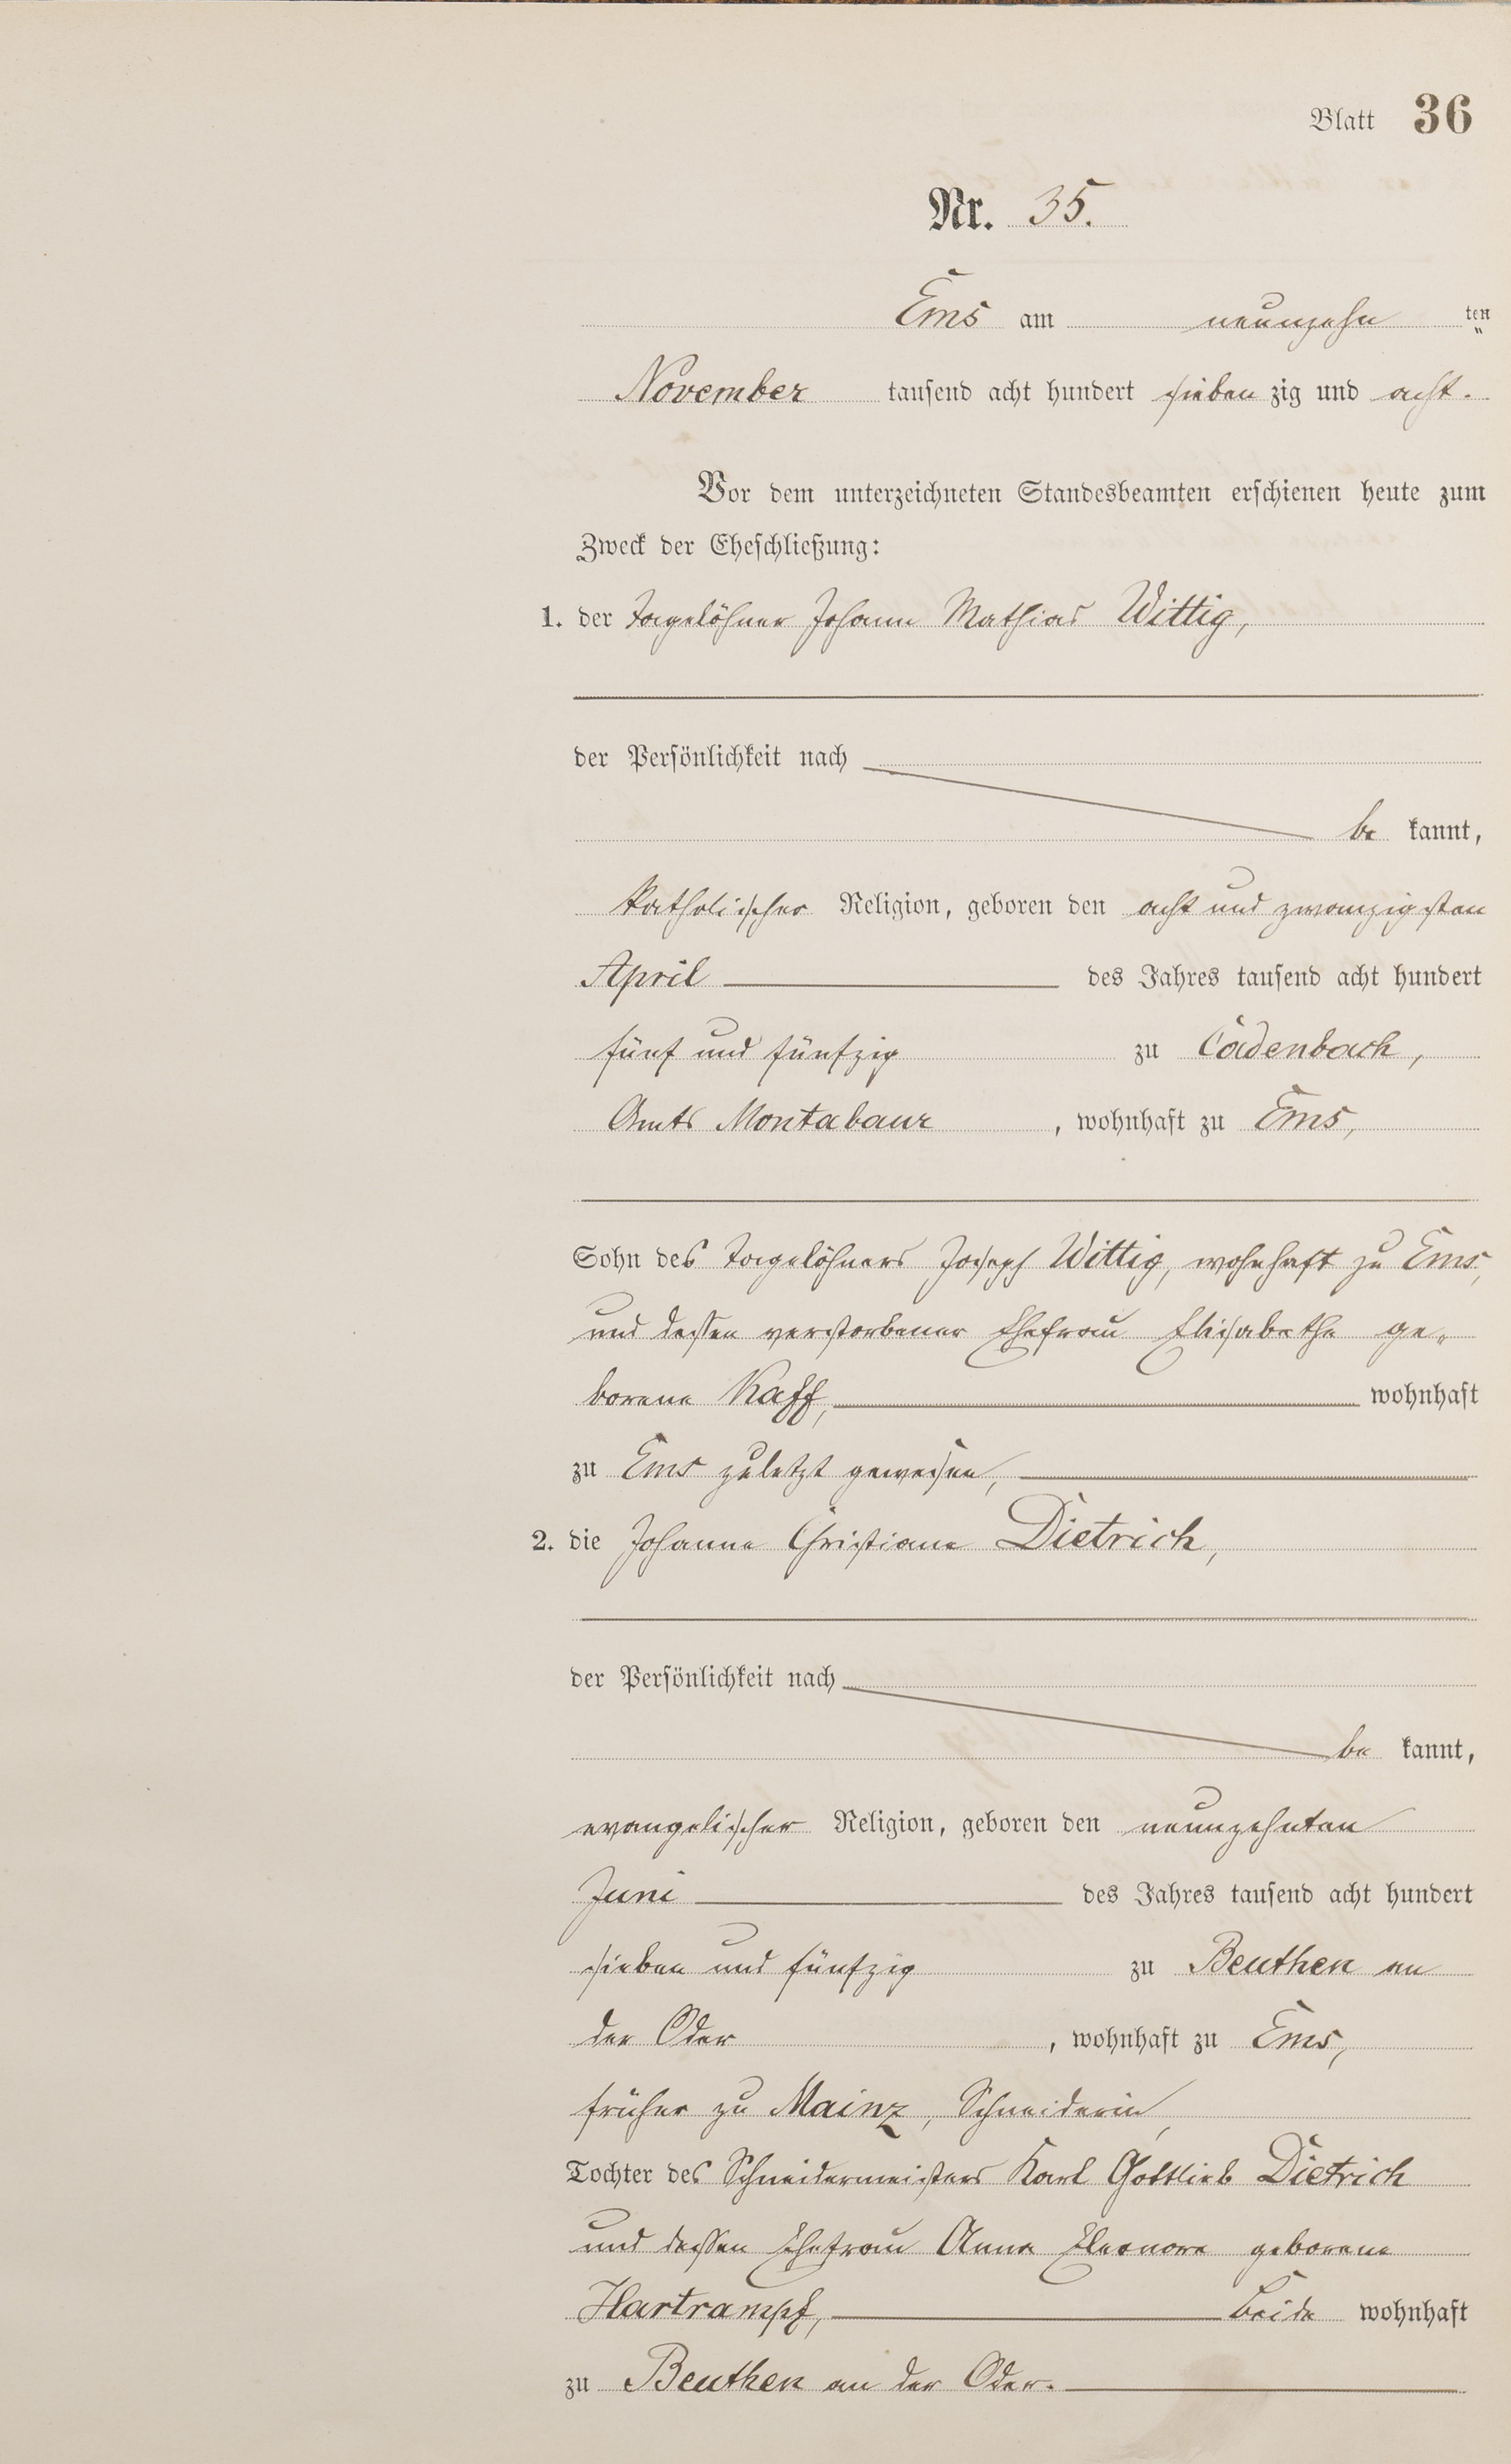 Blatt 36
Nr. 35.
Ems am neunzehnten
November tausend acht hundert siebenzig und acht.
Vor dem unterzeichneten Standesbeamten erschienen heute zum
Zweck der Eheschließung:
1. der Tagelöhner Johann Mathias Wittig,
der Persönlichkeit nach
be kannt,
katholischer Religion, geboren den acht und zwanzigsten
April des Jahres tausend acht hundert
fünf und fünfzig zu Cadenbach,
Amts Montabaur, wohnhaft zu Ems,
Sohn des Tagelöhners Joseph Wittig, wohnhaft zu Ems,
und dessen verstorbener Ehefrau Elisabethe ge„
borene Kaff, wohnhaft
zu Ems zuletzt gewesen,
2. die Johanne Christiane Dietrich,
der Persönlichkeit nach
be kannt,
evangelischer Religion, geboren den neunzehnten
Juni des Jahres tausend acht hundert
sieben und fünfzig zu Beuthen an
der Oder, wohnhaft zu Ems,
früher zu Mainz, Schneiderin,
Tochter des Schneidermeisters Karl Gottlieb Dietrich
und dessen Ehefrau Anna Eleonore geborene
Hartrampf, beide wohnhaft
zu Beuthen an der Oder.